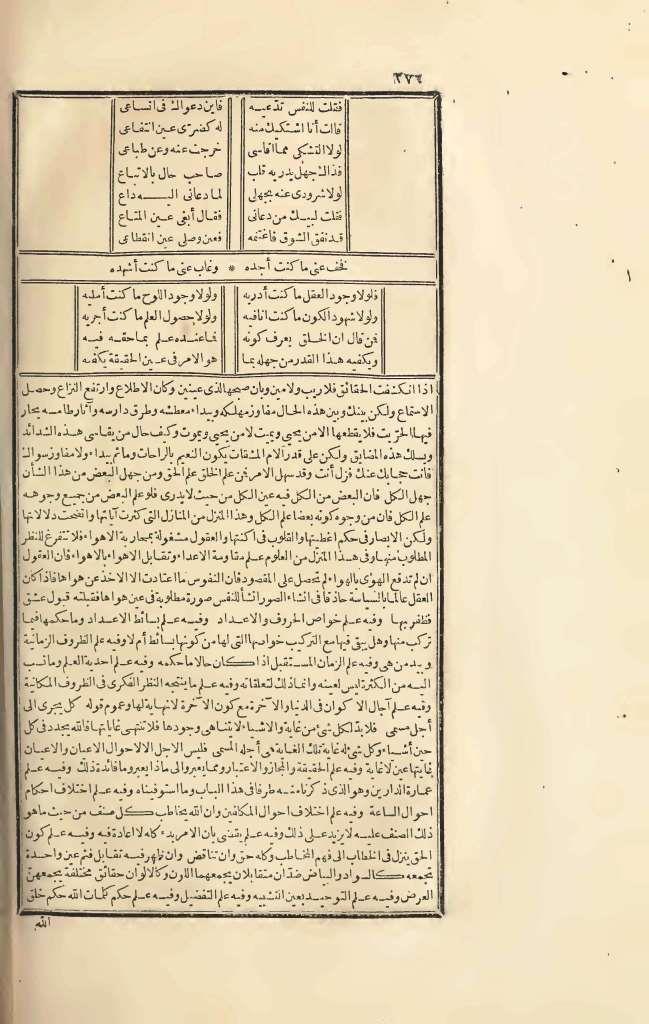 ٣٧٦
فقلت للنفس تدّعيه فاين دعواك فى اتساعى
قالت أنا اشتكيك منه له كضرى عين انتفاعى
لولا التشكى مما اقاسى خرجت عنه وعن طباعى
فذاك جهل يدريه قلب صاحب حال بالاتباع
لولا شرودى عنه بجهلى لما دعانى اليـه داع
فقلت لبيك من دعانى فقال أبغى عين المتاع
قد نفق الشوق فاغتنمه فعين وصلى عين انقطاعى
فخف عنى ما كنت أجده * وغاب عنى ما كنت أشهده
فلولا وجود العقل ما كنت أدريه ولولا وجود اللوح ما كنت أمليه
ولولا شهود الكون ما كنت انافيه ولولا حصول العلم ما كنت أجريه
فمن قال ان الخلق يعرف كونه فما عنده علم بما حقه فيه
ويكفيه هذا القدر من جهله بما هو الامر فى عين الحقيقة يكفيه
اذا انكشفت الحقائق فلا ريب ولا مين وبان صبحها لذى عينين وكان الاطلاع وارتفع النزاع وحصل
الاستماع ولكن بينك وبين هذه الحال مفاوز مهلكه وبيداء معطشه وطرق دارسه وآثار طامسه يحار
فيها الخرّيت فلا يقطعها الا من يحيى ويميت لا من يحيى ويموت وكيف حال من يقاسى هذه الشدائد
ويسلك هذه المضايق ولكن على قدر الآم المشقات يكون النعيم بالراحات وما ثم بيداء ولا مفاوز سواك
فانت حجابك عنك فزل أنت وقد سهل الامر فمن علم الخلق علم الحق ومن جهل البعض من هذا الشأن
جهل الكل فان البعض من الكل فيه عين الكل من حيث لا يدرى فلو علم البعض من جميع وجوهه
علم الكل فان من وجوه كونه بعضا علم الكل وهذا المنزل من المنازل التى كثرت آياتها واتضحت دلالاتها
ولكن الابصار فى حكم اغطيتها والقلوب فى اكنتها والعقول مشغولة بمحاربة الاهواء فلا تتفرغ للنظر
المطلوب منها وفى هذا المنزل من العلوم علم مقاومة الاعداء وتقابل الاهواء بالاهواء فان العقول
ان لم تدفع الهوى بالهواء لم تحصل على المقصود فان النفوس ما اعتادت الا الاخذ عن هواها فاذا كان
العقل عالما بالسياسة حاذقا فى انشاء الصور انشأ للنفس صورة مطلوبة فى عين هواها فقبلته قبول عشق
فظفر بها وفيه علم خواص الحروف والاعداد وفيه علم بسائط الاعداد وما حكمها فيما
تركب منها وهل يبقى فيها مع التركيب خواصها التى لها من كونها بسائط أم لا وفيه علم الظروف الزمانية
وبيد من هى وفيه علم الزمان المستقبل اذا كان حالا ما حكمه وفيه علم احدية العلم وما نسب
اليه من الكثرة ليس لعينه وانما ذلك لتعلقاته وفيه علم ما ينتجه النظر الفكرى فى الظروف المكانية
وفيه علم آجال الاكوان فى الدنيا والآخرة مع كون الآخرة لانهاية لها وعموم قوله كل يجرى الى
أجل مسمى فلا بد لكل شئ من غاية والاشياء لا يتناهى وجودها فلا تنتهى غاياتها فالله يجدد فى كل
حين أشياء وكل شئ له غاية تلك الغاية هى أجله المسمى فليس الاجل الا لاحوال الاعيان والاعيان
غايتها عين لا غاية وفيه علم الحقيقة والمجاز والاعتبار ومما يعبر والى ماذا يعبر وما فائدة ذلك وفيه علم
عمارة الدارين وهو الذى ذكرنا منه طرفا فى هذا الباب وما استوفيناه وفيه علم اختلاف احكام
احوال الساعة وفيه علم اختلاف احوال المكلفين وان الله يخاطب كل صنف من حيث ما هو
ذلك الصنف عليه لا يزيد على ذلك وفيه علم يقتضى بان الامر بدء كله لا اعادة فيه وفيه علم كون
الحق ينزل فى الخطاب الى فهم المخاطب وكله حق وان تناقض وان ظهر فيه تقابل فثم عين واحدة
تجمعه كالسواد والبياض ضدّان متقابلان يجمعهما اللون وكالالوان حقائق مختلفة يجمعهنّ
العرض وفيه علم التوحيد بعين التشبيه وفيه علم التفضيل وفيه علم حكم كلمات الله حكم خلق
الله